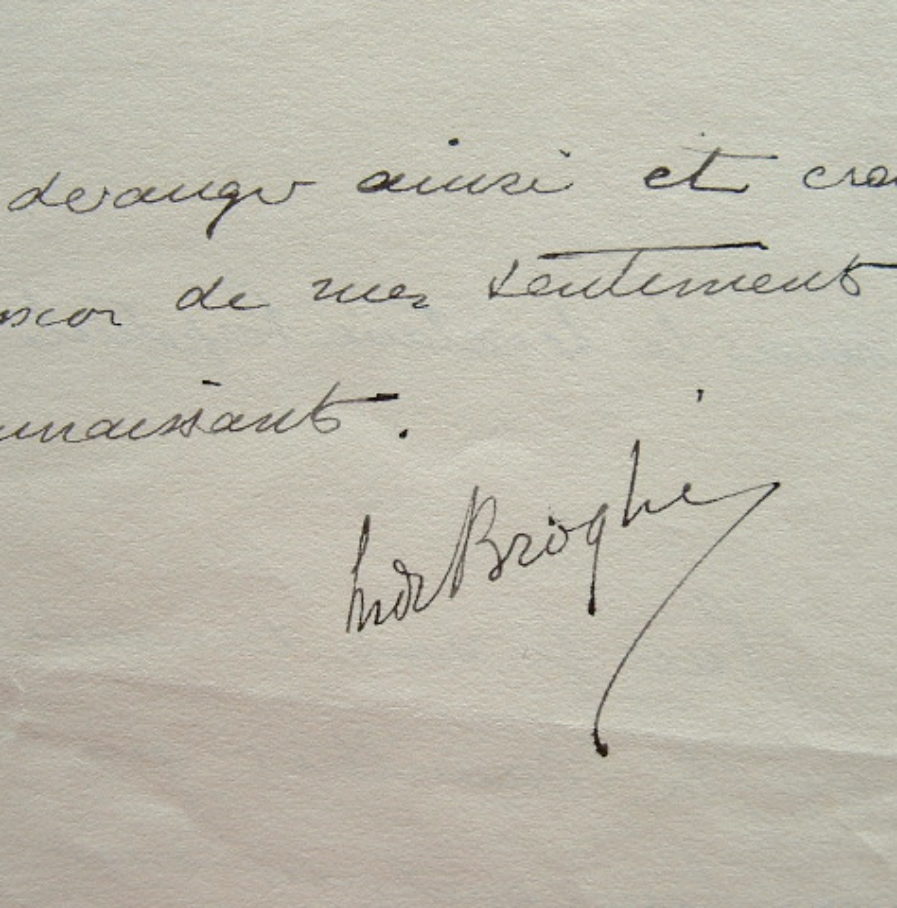 deranger ainsi et croi
de mes sentiments
nnaissants.
de Broglie